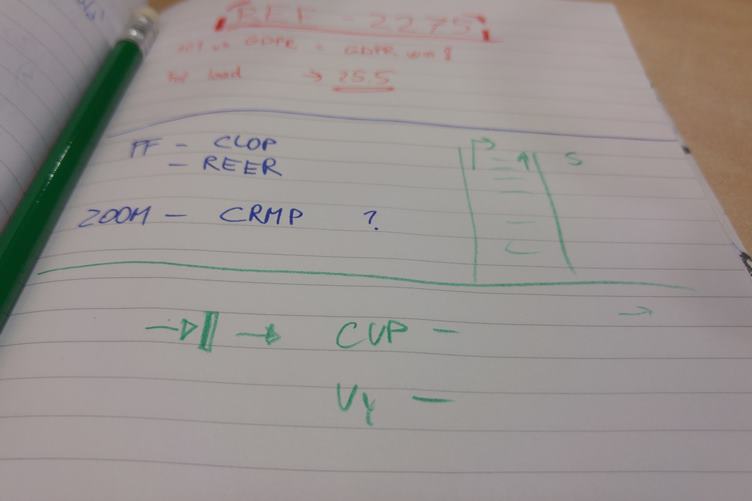 REF - 2275
GDPR = GDPR win!
load → 25.5
FF - CLOP
- REER
S
ZOOM - CRMP ?
→
→ → CVP -
Vy -